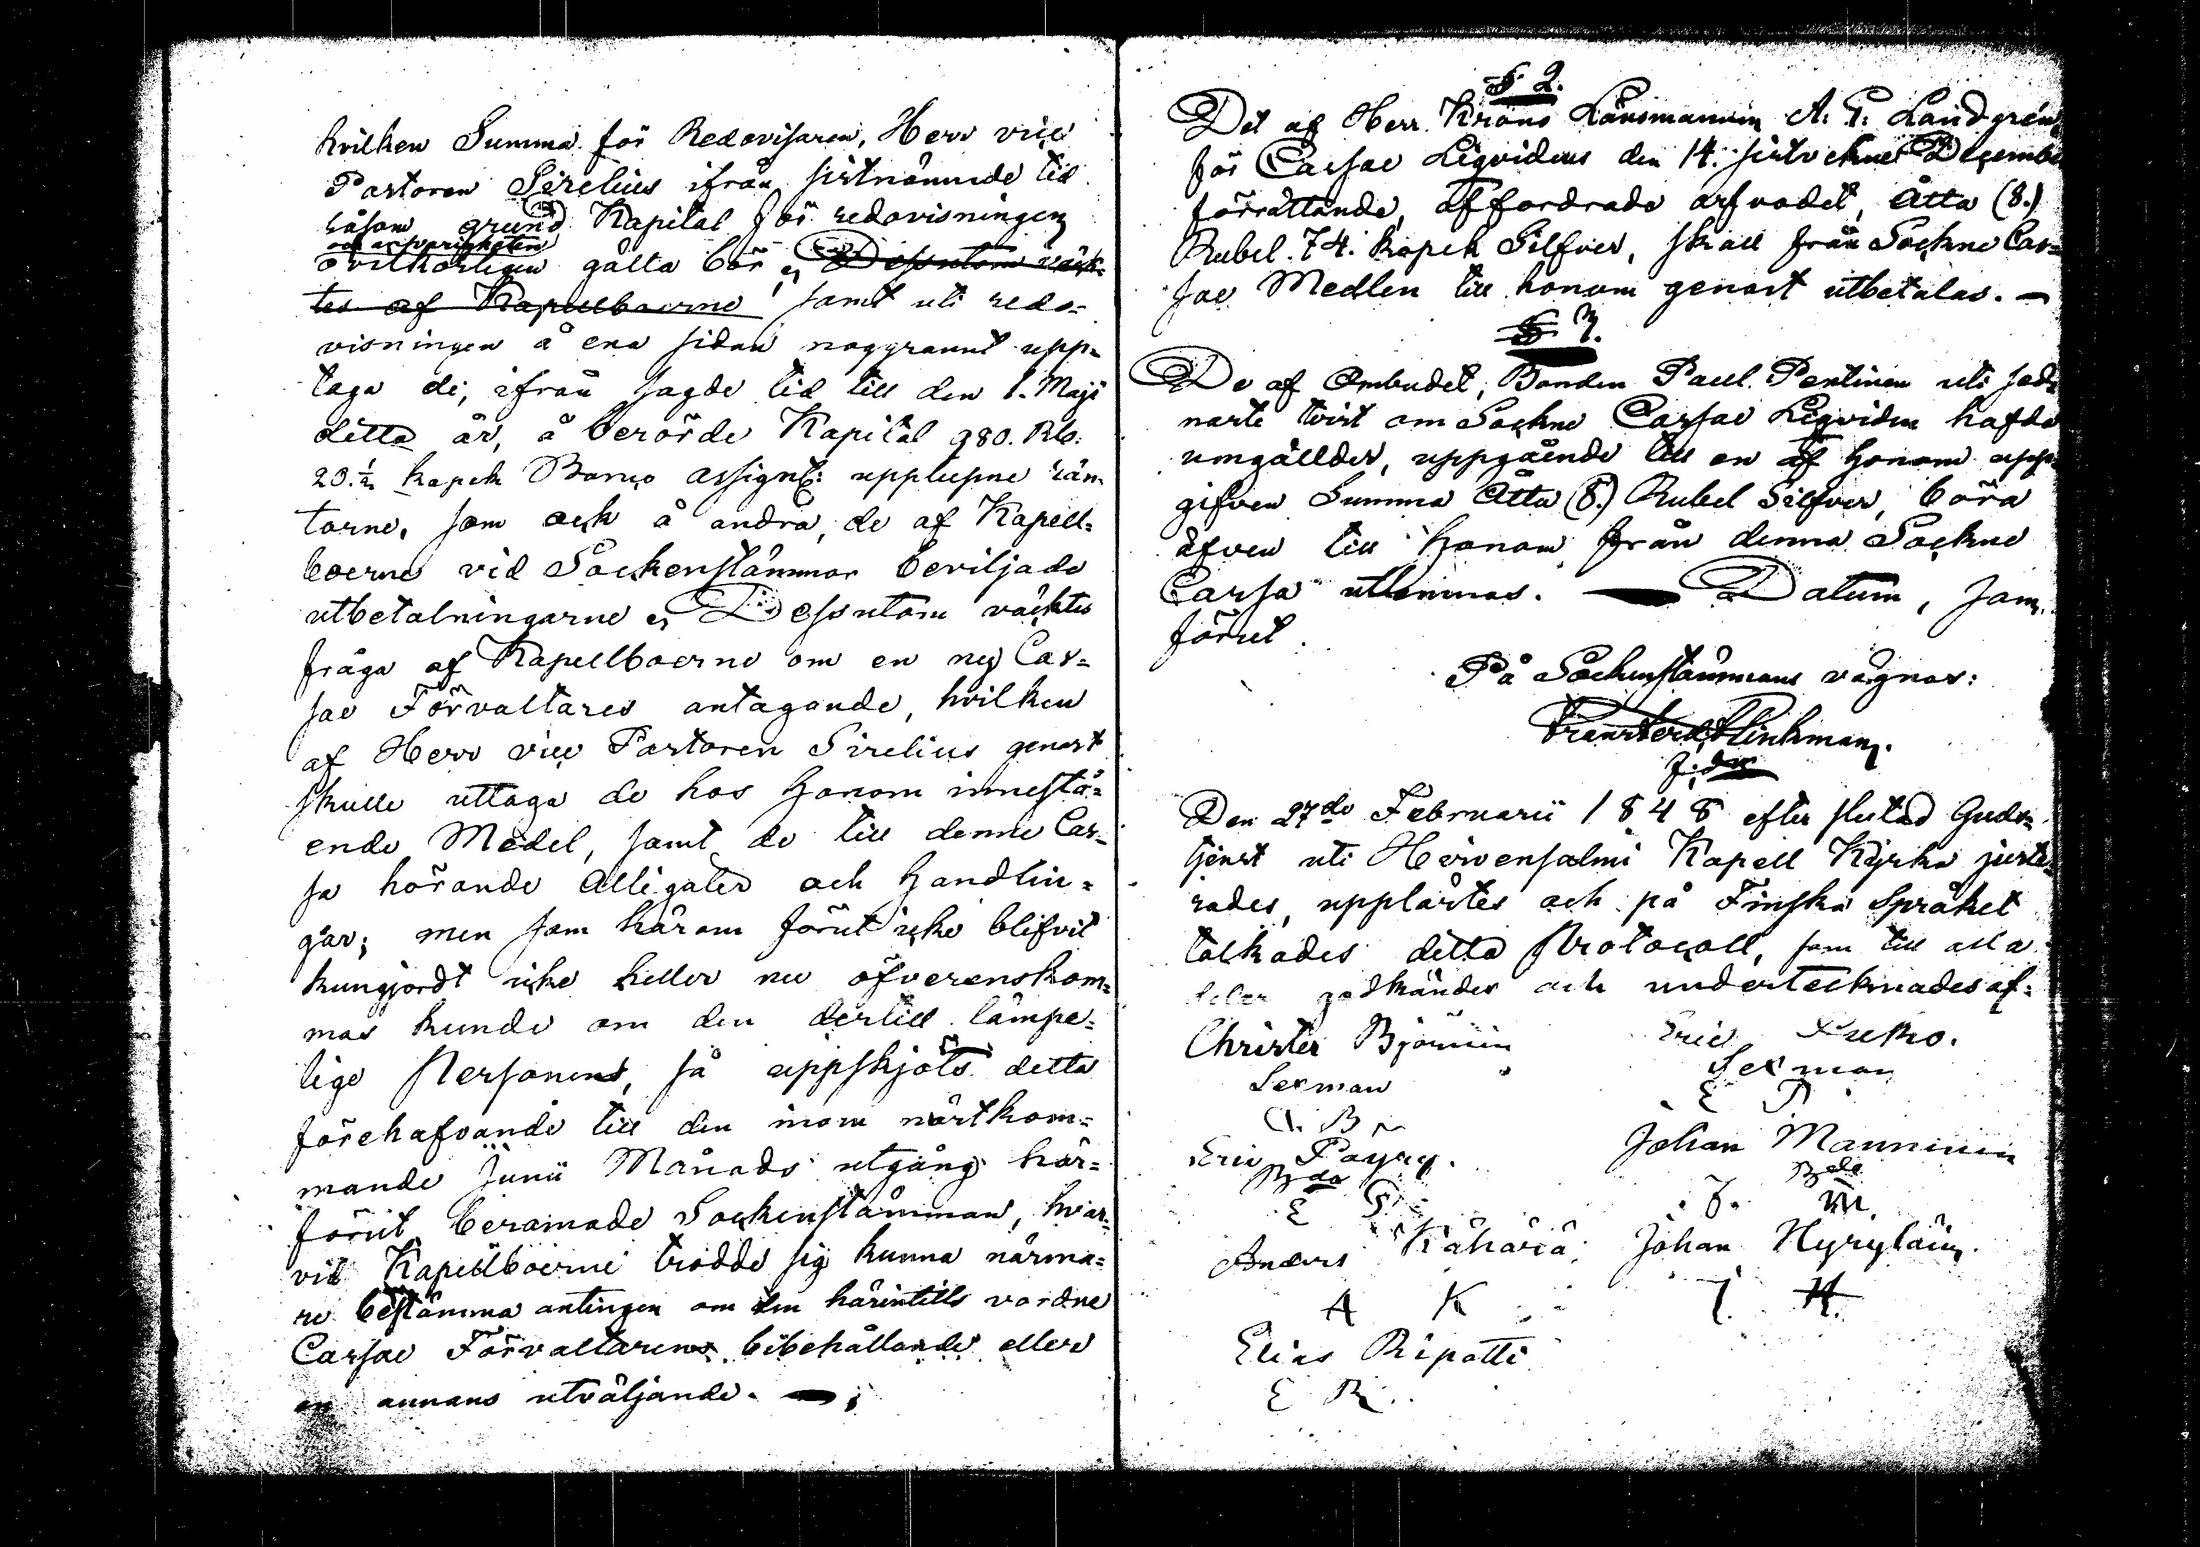 hvilken Summa för Redovisaren, Herr vice
Pastoren Sirelius ifrån sistnämnde tid
såsom grund Kapital för redovisningen
och ansvarigheten
ovilkorligen gälla bör, Dessutom väck-
tes af Kapellboerne samt uti redo-
visningen å ena sidan noggrannt upp-
taga de, ifrån sagde tid till den 1. Maji
detta år, å berörde Kapital 980. Rb.
20.½ kopek Banco assignt: upplupne rän-
torne, som ock å andra, de af Kapell-
boerne vid Sockenstämmor beviljade
utbetalningarne, Dessutom väcktes
fråga af Kapellboerne om en ny Cas-
sae Förvaltares antagande, hvilken
af Herr vice Pastoren Sirelius genast
skulle uttaga de hos honom innestå-
ende Medel, samt de till denne Cas-
sa hörande Alligater och Handlin-
gar; men som härom förut icke blifvit
kungjordt icke heller nu öfverenskom-
mas kunde om den dertill lämpe-
lige Personen, så uppskjöts detta
förehafvande till den inom nästkom-
mande Junii Månads utgång här-
förut beramade Sockenstämman, hvar-
vid Kapellboerne trodde sig kunna närma-
re bestämma antingen om den härintills vordne
Cassae Förvaltarens bibehållande eller
en annans utväljande. —
§ 2.
Det af Herr Krono Länsmannen A. G. Landgren,
för Cassae Liqvidens den 14. sistvekne December
förrättande, affordrade arfvodet, Åtta (8.)
Rubel. 74. kopek Silfver, skall från Sockne Cas-
sae Medlen till honom genast utbetalas. —
§ 3.
De af Ombudet, Bonden Paul Pentinen uti sed-
naste tvist om Sockne Cassae Liqviden hafde
umgällder, uppgående till en af honom upp-
gifven Summa Åtta (8.) Rubel Silfver, böra
äfven till honom från denna Sockne
Cassa utlemnas. — Datum, som
förut.
På Sockenstämmans vägnar:
Den 27de Februarii 1848 efter slutad Guds-
tjenst uti Hirvensalmi Kapell Kyrka juste-
rades, upplästes och på Finska Språket
tolkades detta Protocoll, som till alla
delar godkändes och undertecknades af:
Christer Björnin Eric
Sexman Sexman
C. B E P
Eric Payry. Johan Manninen
Bde Bde
E P. J. M.
Anders Kähärä. Johan Hyryläin.
A K J H.
Elias Ripatti
E R.